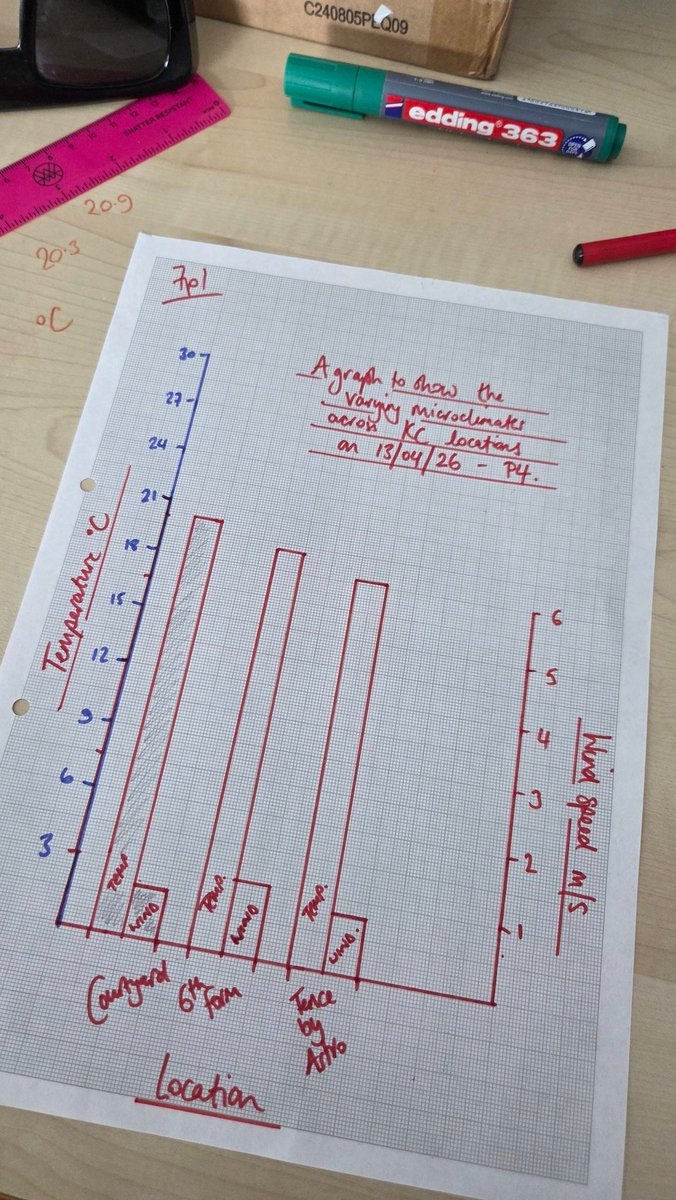 C240805PLQ09
edding 363
SHATTER RESISTANT
20.9
20.3
°C
7p1
A graph to show the
varying microclimates
across KC locations
on 13/04/26 - P4.
Temperature °C
30
27
24
21
18
15
12
9
6
3
6
5
4
3
2
1
Wind speed m/s
TEMP
WIND
TEMP.
WIND
TEMP.
WIND.
Courtyard
6th Form
Fence
by
Astro
Location